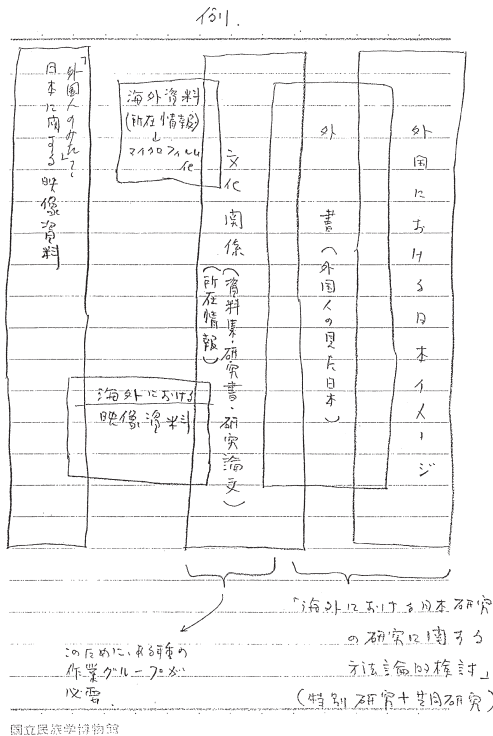 例.
外国における日本イメージ
外　書（外国人の見た日本）
文化　関係（資料集・研究書・研究論文）
（所在情報）
海外資料
(所在情報)
↓
マイクロフィルム
化
海外における
映像資料
「外国人のみた」
日本に関する映像資料
「海外における日本研究
の研究に関する
方法論的検討」
(特別研究+共同研究)
このために、ある種の
作業グループが
必要.
国立民族学博物館